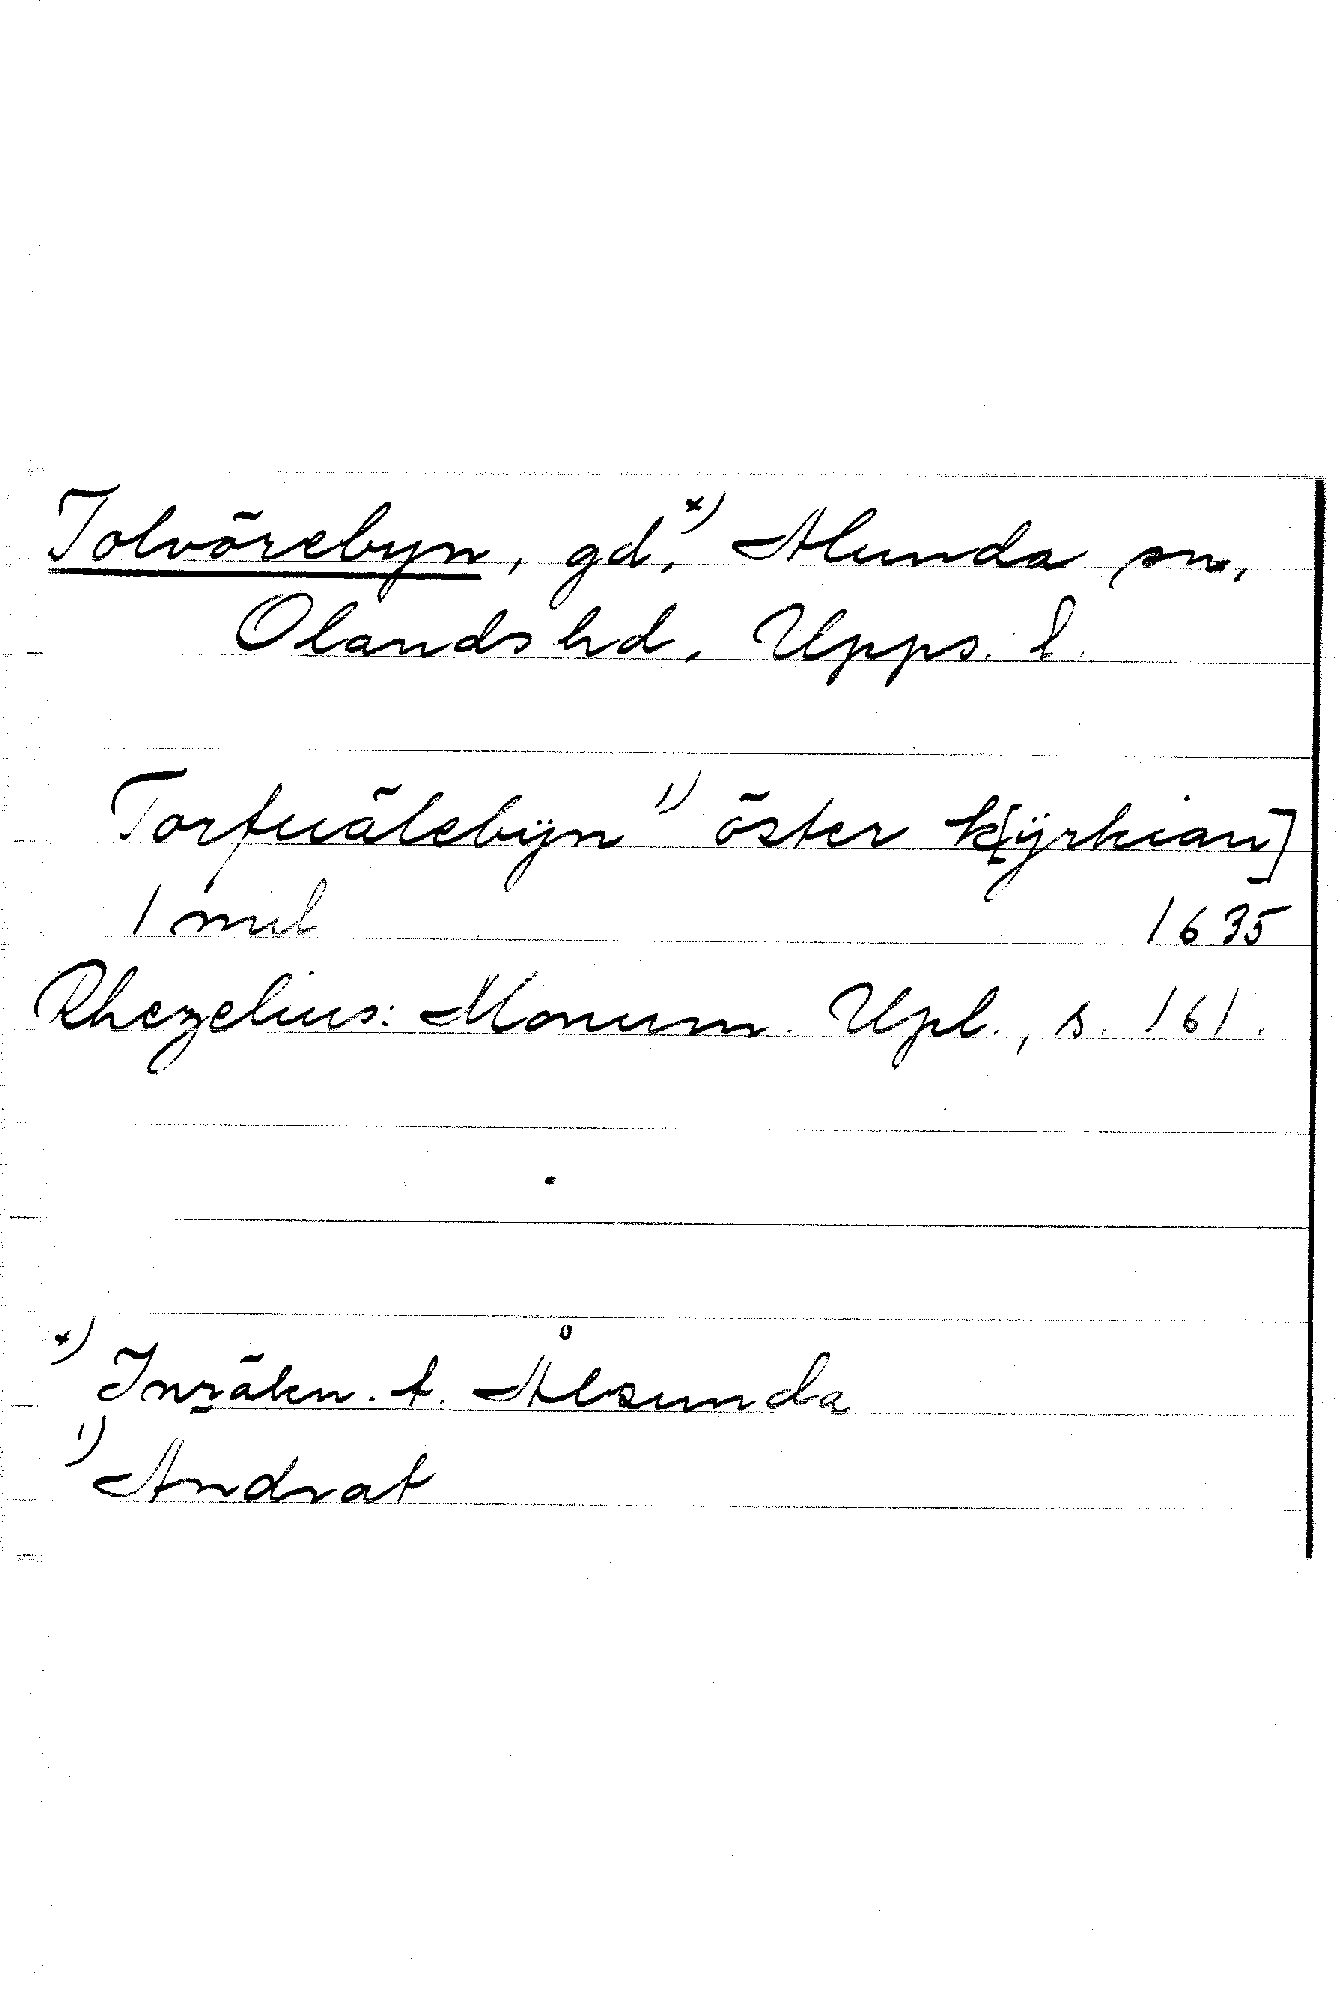 Tolvörebyn, gd,*) Alunda sn,
Olands hd, Upps. l.
Torfuälebÿn 1) öster k[ÿrkian]
1 mil 1635
Rhezelius: Monum. Upl., s. 161.
*) Inräkn. t. Ålsunda
1) Ändrat